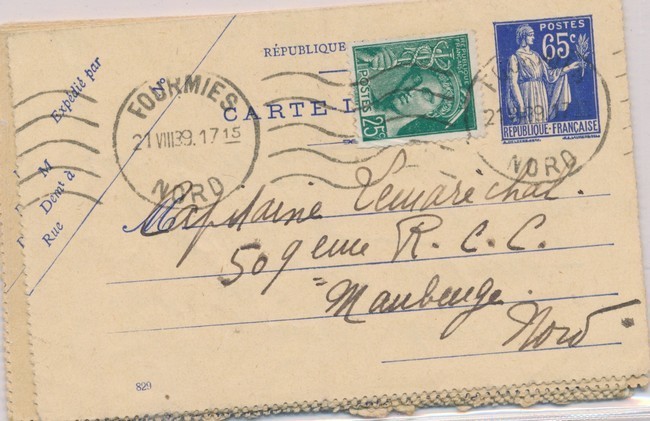 RÉPUBLIQUE
CARTE L
POSTES
65c
RÉPUBLIQUE-FRANÇAISE
POSTES 25c
Expédié par
M
Demt à
Rue
N°
FOURMIES
21 VIII 39. 17 15
NORD
NORD
Capitaine Lemaréchal.
509eme R. C. C.
Maubeuge.
Nord.
829